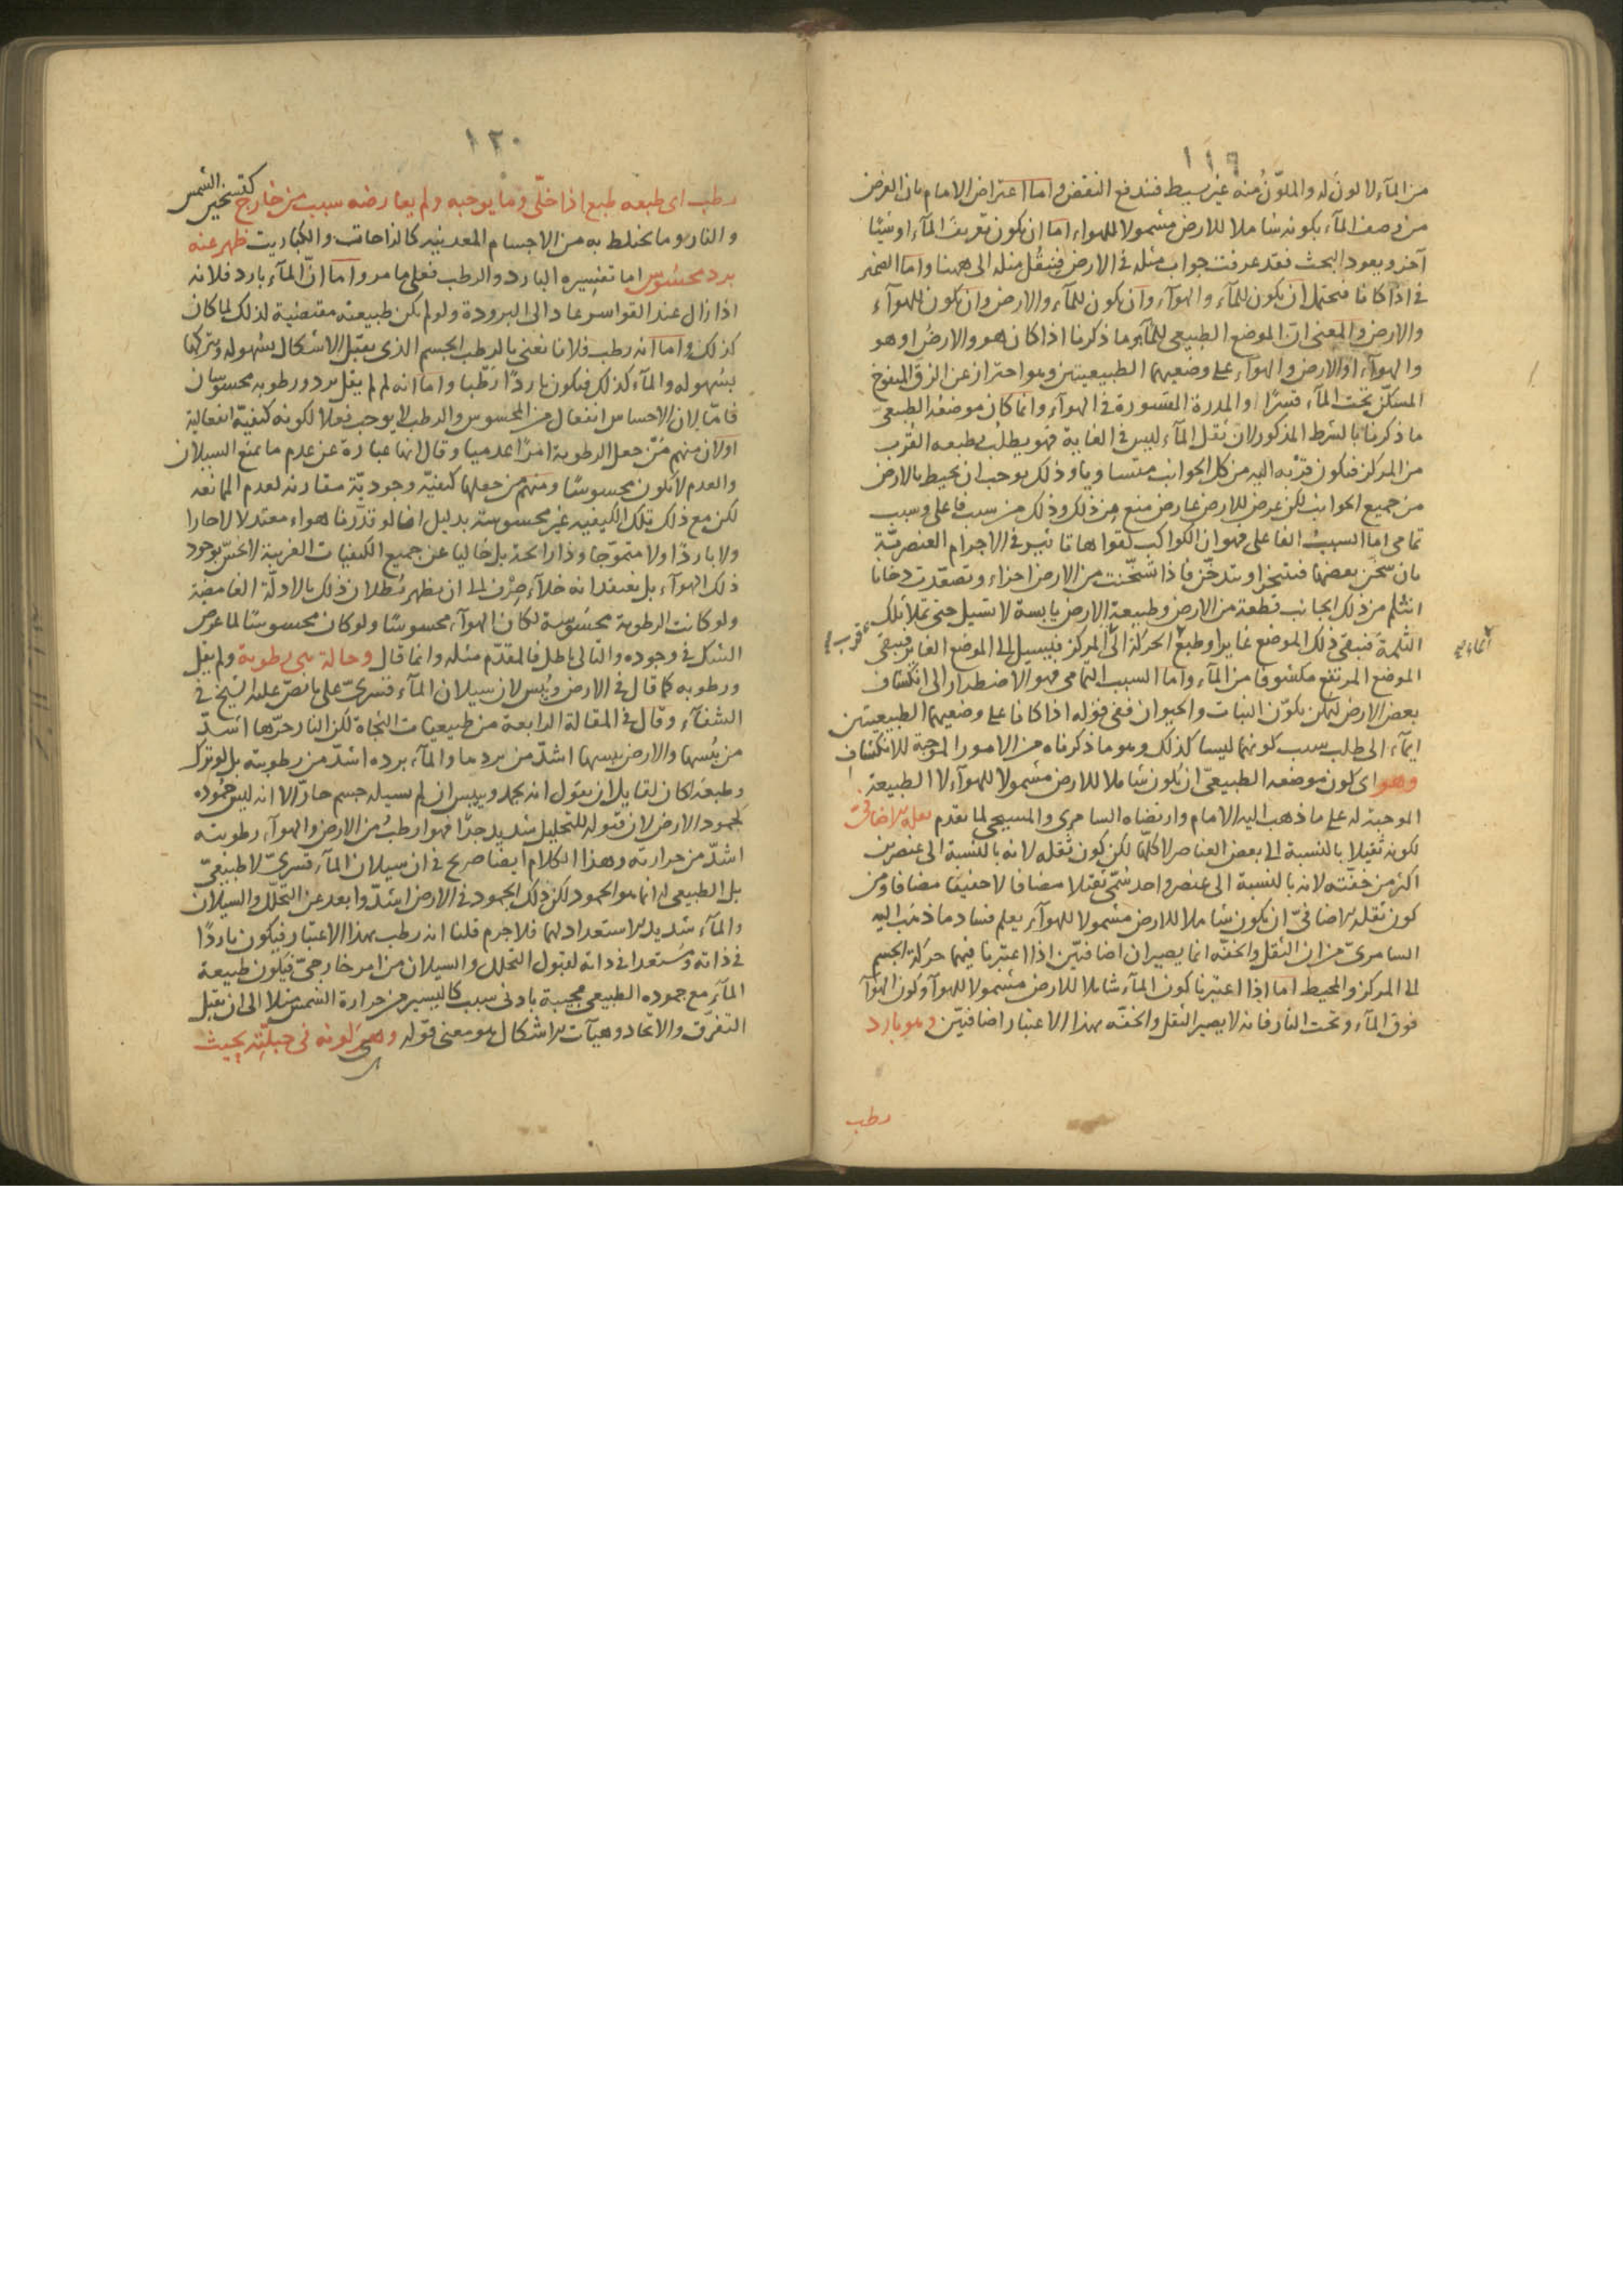 ١١٩
من المآء لا لون له والملوّن منه غير بسيط فندفع النقض واما اعتراض الامام بان الغرض
من وصف المآء بكونه شاملا للارض مشمولا للهواء اما ان يكون تعريف المآء او شيئا
آخر ويعود البحث فقد عرفت جواب مثله فى الارض فينقل مثله الى ههنا واما الضمير
فى اذا كانا فيحتمل ان يكون للمآء والهوآء وان يكون للمآء والارض وان يكون للهوآء
والارض والمعنى ان الموضع الطبيعى للمآء هو ما ذكرنا اذا كان هو والارض او هو
والهوآء او الارض والهوآء على وضعيهما الطبيعيتين وهو احتراز عن الزق المنفوخ
المسكن تحت المآء قسرًا او المدرة المقسورة فى الهوآء وانما كان موضعه الطبيعىّ
ما ذكرنا بالشرط المذكور لان ثقل المآء ليس فى الغاية فهو يطلب بطبعه القرب
من المركز فيكون قربه اليه من كل الجوانب متساويا وذلك يوجب ان يحيط بالارض
من جميع الجوانب لكن عرض للارض عارض منع من ذلك وذلك من سبب فاعلى وسبب
تمامى اما السبب الفاعلى فهو ان الكواكب لقواها تاثير فى الاجرام العنصريّة
بان سخن بعضها فيتبخر او يتدخّن فاذا سخّنت من الارض اجزاء وتصعّدت دخانا
انثلم من ذلك الجانب قطعة من الارض وطبيعة الارض يابسة لا تسيل حتى تملأ تلك
الثلمة فتبقى ذلك الموضع غايرا وطبع الحركة الى المركز فيسيل الى الموضع الغاير فيبقى
الموضع المرتفع مكشوفا من المآء واما السبب التمامى فهو الاضطرار الى انكشاف
بعض الارض ليمكن تكوّن النبات والحيوان ففى قوله اذا كانا على وضعيهما الطبيعيتين
ايمآء الى طلب سبب كونهما ليسا كذلك وهو ما ذكرناه من الامور الموجبة للانكشاف
وهو اى كون موضعه الطبيعىّ ان يكون شاملا للارض مشمولا للهوآء لا الطبيعة
الموجبة له على ما ذهب اليه الامام وارتضاه السامرى والمسيحى لما تقدم ثقله الاضافىّ
لكونه ثقيلا بالنسبة الى بعض العناصر لا كلها لكن كون ثقله لانه بالنسبة الى عنصرين
اكثر من خفّته لانه بالنسبة الى عنصر واحد سمّى ثقيلا مضافا لا خفيفا مضافا ومن
كون ثقله الاضافىّ ان يكون شاملا للارض مشمولا للهوآء يعلم فساد ما ذهب اليه
السامرىّ من ان الثقل والخفّه انما يصيران اضافيّين اذا اعتبرنا فيهما حركة الجسم
الى المركز والمحيط اما اذا اعتبرنا كون المآء شاملا للارض مشمولا للهوآ وكون الهوآ
فوق المآء وتحت النار فانه لا يصير الثقل والخفّه بهذا الاعتبار اضافيّين وهو بارد
رطب
١٢٠
رطب اى طبعه طبع اذا خلّى وما يوجبه ولم يعارضه سبب من خارج كتسخير الشمس
والنار وما يختلط به من الاجسام المعدنيه كالزاجات والكباريت ظهر عنه
برد محسوس اما تفسيره البارد والرطب فعلى ما مر واما انّ المآء بارد فلانه
اذا زال عند القواسر عاد الى البرودة ولو لم يكن طبيعته مقتضية لذلك لما كان
كذلك واما انه رطب فلانا نعنى بالرطب الجسم الذى يقبل الاشكال بسهوله ويتركها
بسهوله والمآء كذلك فيكون باردًا رطّبا واما انه لم لم يقل برد ورطوبه محسوسان
فامّا لان الاحساس انفعال من المحسوس والرطب لا يوجب فعلا لكونه كيفيّة انفعالية
او لان منهم من جعل الرطوبة امرًا عدميا وقال انها عبارة عن عدم ما يمنع السيلان
والعدم لا يكون محسوسًا ومنهم من جعلها كيفيّة وجوديّة مقارنه لعدم الممانعه
لكن مع ذلك تلك الكيفيه غير محسوسة بدليل انا لو قدّرنا هواء معتدلا لا حارا
ولا باردًا ولا متموّجا وذا رائحة بل خاليا عن جميع الكيفيات الغريبة لا نحسّ بوجود
ذلك الهوآء بل نعتقد انه خلآء صرف الى ان يظهر بُطلان ذلك بالادلّة الغامضة
ولو كانت الرطوبة محسوسة لكان الهوآء محسوسًا ولو كان محسوسًا لما عرض
الشك فى وجوده والتالى باطل فالمقدّم مثله وانما قال وحالة هى رطوبة ولم يقل
ورطوبه كما قال فى الارض ويُبس لان سيلان المآء قسرىّ على ما نصّ عليه الشيخ فى
الشفآء وقال فى المقالة الرابعة من طبيعيات النجاة لكن النار حرّها اشدّ
من يُبسها والارض يبسها اشدّ من بردها والمآء برده اشدّ من رطوبته بل لو ترك
وطبعَه كان لقايل ان يقول انه يجمد وييبس ان لم يسيله جسم حارّ الا انه ليس جموده
كجمود الارض لان قبوله للتحليل شديد جدًا فهو ارطبُ من الارض والهوآء رطوبته
اشدّ من حرارته وهذا الكلام ايضا صريح فى ان سيلان المآء قسرىّ لا طبيعىّ
بل الطبيعى له انما هو الجمود لكن ذلك الجمود فى الارض اشدّ وابعد عن التحلّل والسيلان
والمآء شديد الاستعداد لهما فلا جرم قلنا انه رطب بهذا الاعتبار فيكون باردًا
فى ذاته ومستعدا فى ذاته لقبول التحلل والسيلان من امر خارجىّ فيكون طبيعة
المآء مع جموده الطبيعى مجيبة بادنى سبب كاليسير من حرارة الشمس مثلا الى ان يقبل
التفرّق والاتحاد وهيآت الاشكال هو معنى قوله وهى كونه فى جبلّته بحيث